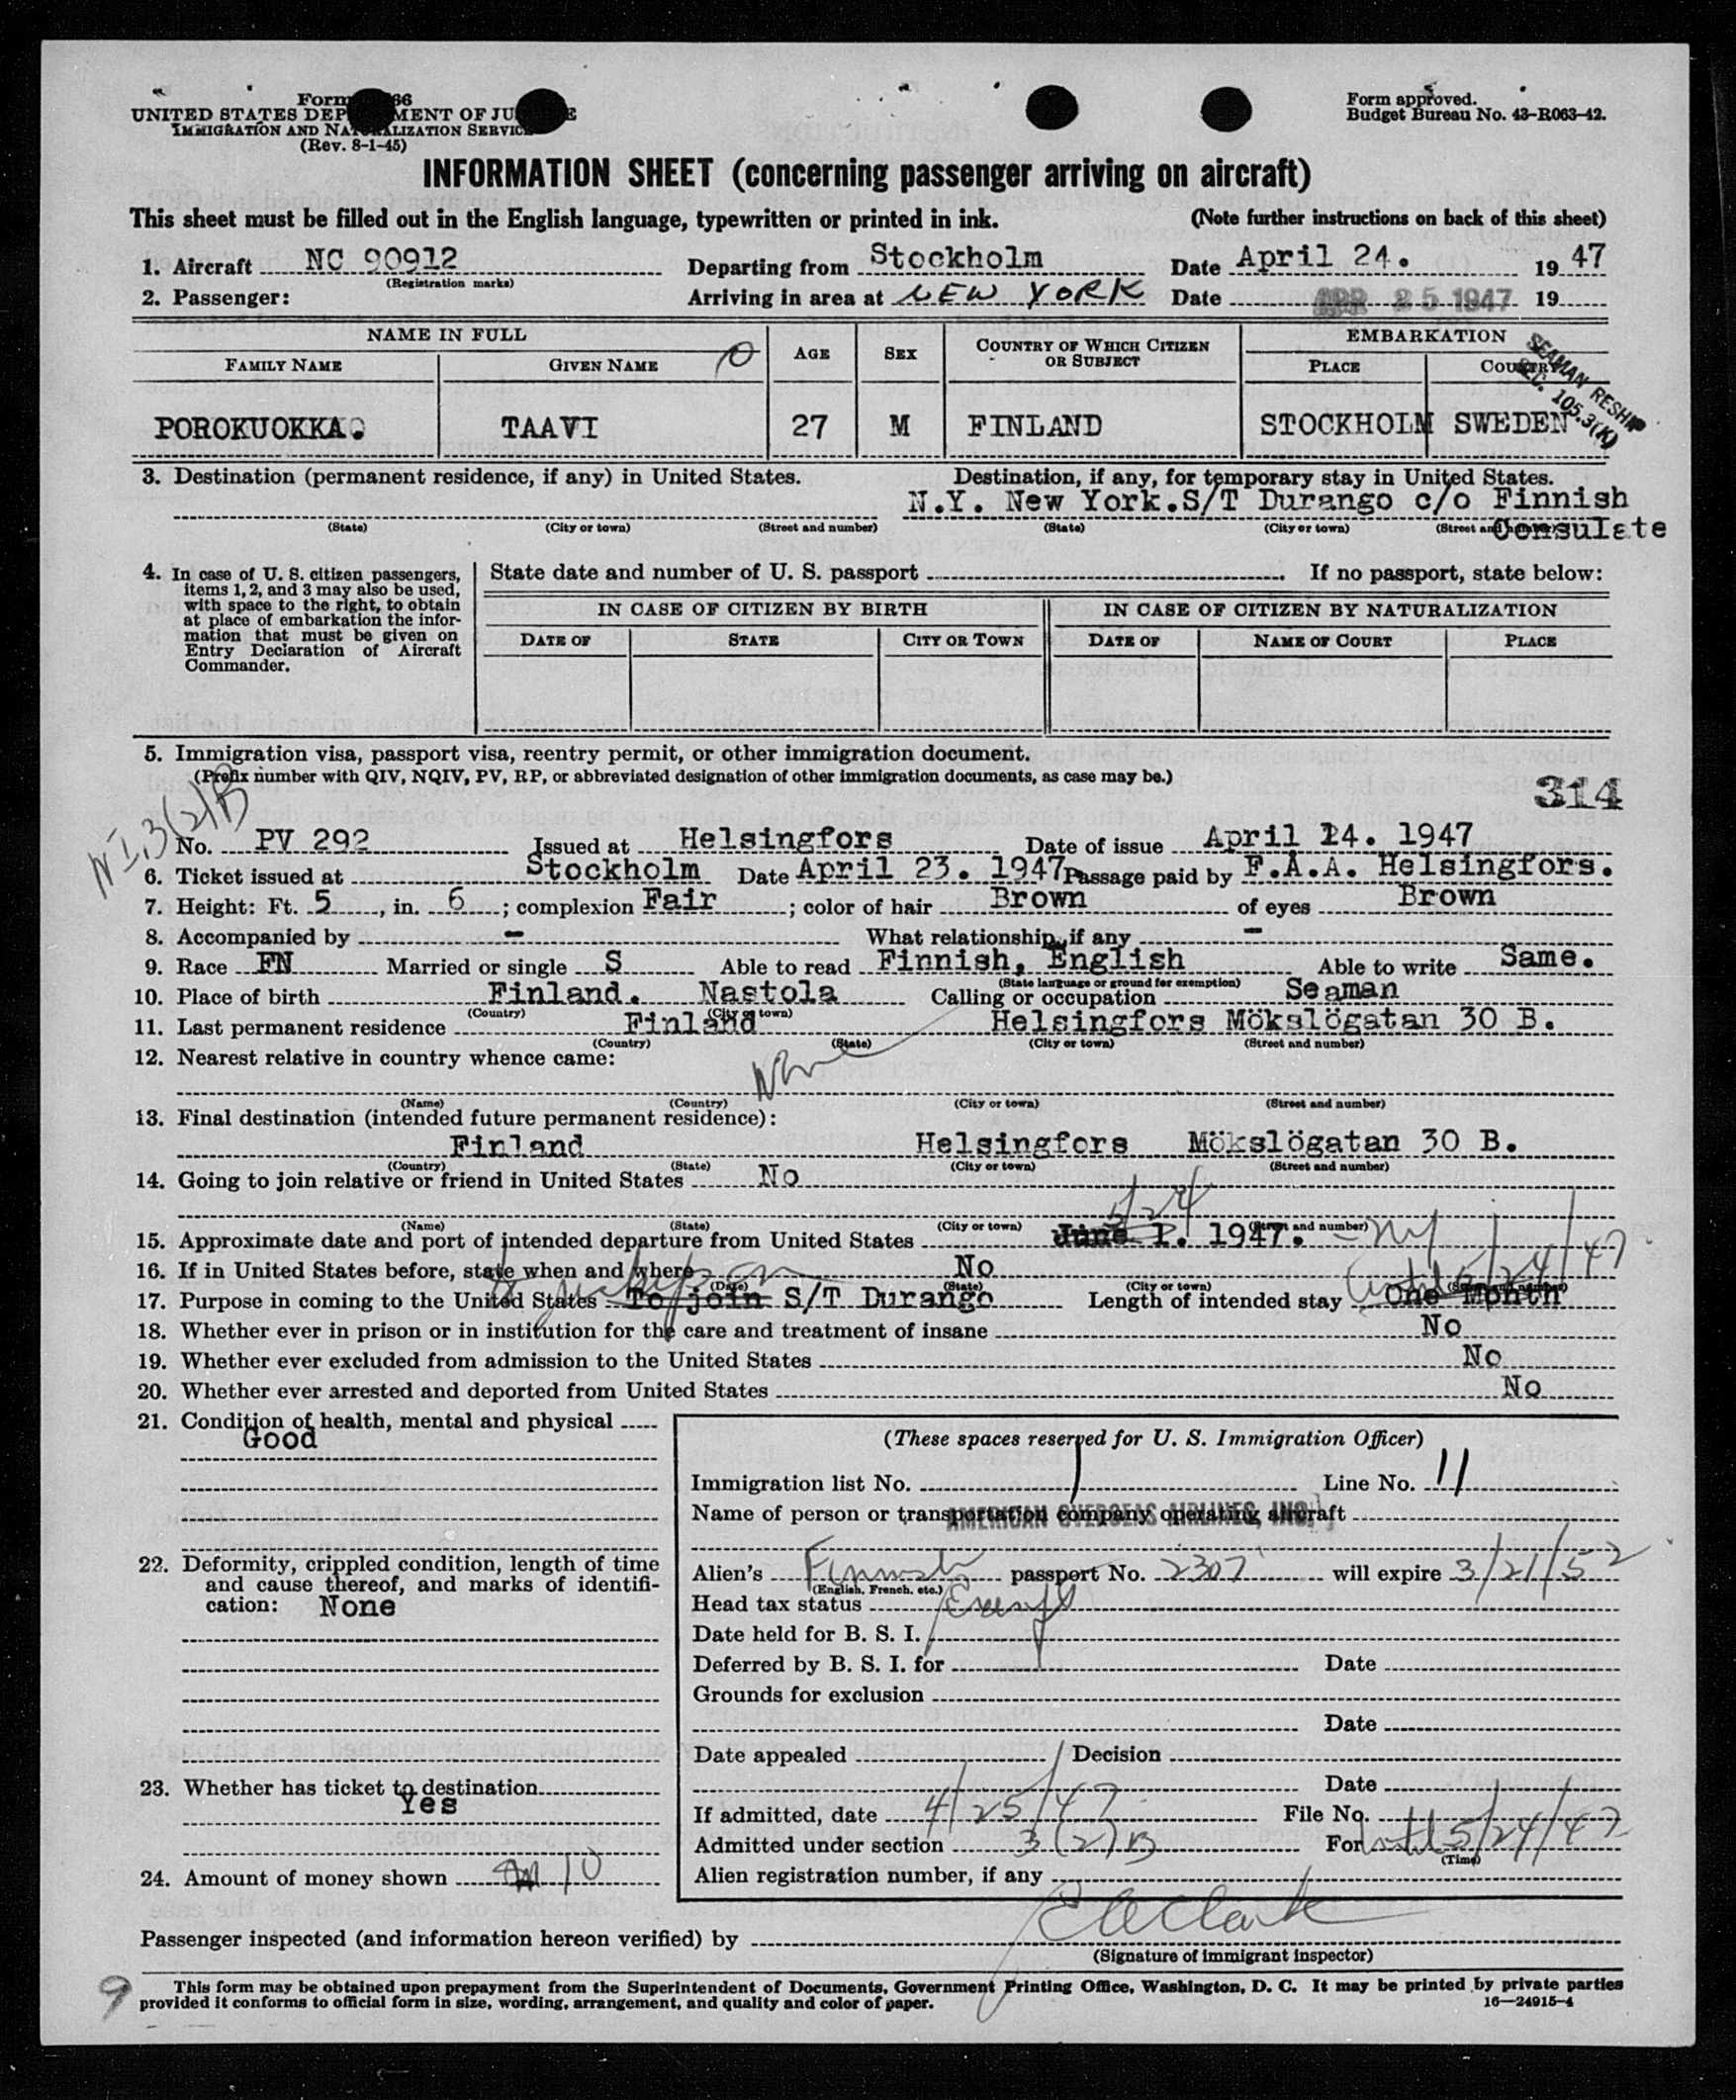 Form 66
UNITED STATES DEP MENT OF JU E
IMMIGRATION AND NATURALIZATION SERVICE
(Rev. 8-1-45)
Form approved.
Budget Bureau No. 43-R063-42.
INFORMATION SHEET (concerning passenger arriving on aircraft)
This sheet must be filled out in the English language, typewritten or printed in ink. (Note further instructions on back of this sheet)
1. Aircraft NC 90912 Departing from Stockholm Date April 24. 19 47
(Registration marks)
2. Passenger: Arriving in area at NEW YORK Date APR 25 1947 19
NAME IN FULL AGE SEX COUNTRY OF WHICH CITIZEN OR SUBJECT EMBARKATION
FAMILY NAME GIVEN NAME PLACE COUNTRY
SEAMAN RESHIP
SEC. 105.3(K)
POROKUOKKA. TAAVI 27 M FINLAND STOCKHOLM SWEDEN
3. Destination (permanent residence, if any) in United States. Destination, if any, for temporary stay in United States.
N.Y. New York.S/T Durango c/o Finnish
Consulate
(State) (City or town) (Street and number) (State) (City or town) (Street and number)
4. In case of U. S. citizen passengers, items 1, 2, and 3 may also be used, with space to the right, to obtain at place of embarkation the information that must be given on Entry Declaration of Aircraft Commander.
State date and number of U. S. passport If no passport, state below:
IN CASE OF CITIZEN BY BIRTH IN CASE OF CITIZEN BY NATURALIZATION
DATE OF STATE CITY OR TOWN DATE OF NAME OF COURT PLACE
5. Immigration visa, passport visa, reentry permit, or other immigration document.
(Prefix number with QIV, NQIV, PV, RP, or abbreviated designation of other immigration documents, as case may be.)
314
NI, 3(2)B
No. PV 292 Issued at Helsingfors Date of issue April 14. 1947
6. Ticket issued at Stockholm Date April 23. 1947 Passage paid by F.Å.A. Helsingfors.
7. Height: Ft. 5, in. 6; complexion Fair; color of hair Brown of eyes Brown
8. Accompanied by - What relationship, if any -
9. Race FN Married or single S Able to read Finnish, English Able to write Same.
(State language or ground for exemption)
10. Place of birth Finland. Nastola Calling or occupation Seaman
(Country) (City or town)
11. Last permanent residence Finland Helsingfors Mökslögatan 30 B.
(Country) (State) (City or town) (Street and number)
12. Nearest relative in country whence came:
None
(Name) (Country) (City or town) (Street and number)
13. Final destination (intended future permanent residence):
Finland Helsingfors Mökslögatan 30 B.
(Country) (State) (City or town) (Street and number)
14. Going to join relative or friend in United States No
5/24
(Name) (State) (City or town) (Street and number)
15. Approximate date and port of intended departure from United States June 1. 1947. - NY
16. If in United States before, state when and where No
(Date) (State) (City or town) (Street and number)
to reship on until 5/24/47
17. Purpose in coming to the United States To join S/T Durango Length of intended stay One Month
18. Whether ever in prison or in institution for the care and treatment of insane No
19. Whether ever excluded from admission to the United States No
20. Whether ever arrested and deported from United States No
21. Condition of health, mental and physical
Good
22. Deformity, crippled condition, length of time and cause thereof, and marks of identification: None
23. Whether has ticket to destination
Yes
24. Amount of money shown 10
(These spaces reserved for U. S. Immigration Officer)
Immigration list No. 1 Line No. 11
Name of person or transportation company operating aircraft
AMERICAN OVERSEAS AIRLINES, INC.
Alien's Finnish passport No. 2307 will expire 3/21/52
(English, French, etc.)
Head tax status Exempt
Date held for B. S. I.
Deferred by B. S. I. for Date
Grounds for exclusion
Date
Date appealed Decision
Date
If admitted, date 4/25/47 File No.
Admitted under section 3(2)B For until 5/24/47
(Time)
Alien registration number, if any
Passenger inspected (and information hereon verified) by
(Signature of immigrant inspector)
9
This form may be obtained upon prepayment from the Superintendent of Documents, Government Printing Office, Washington, D. C. It may be printed by private parties
provided it conforms to official form in size, wording, arrangement, and quality and color of paper. 16—24915-4